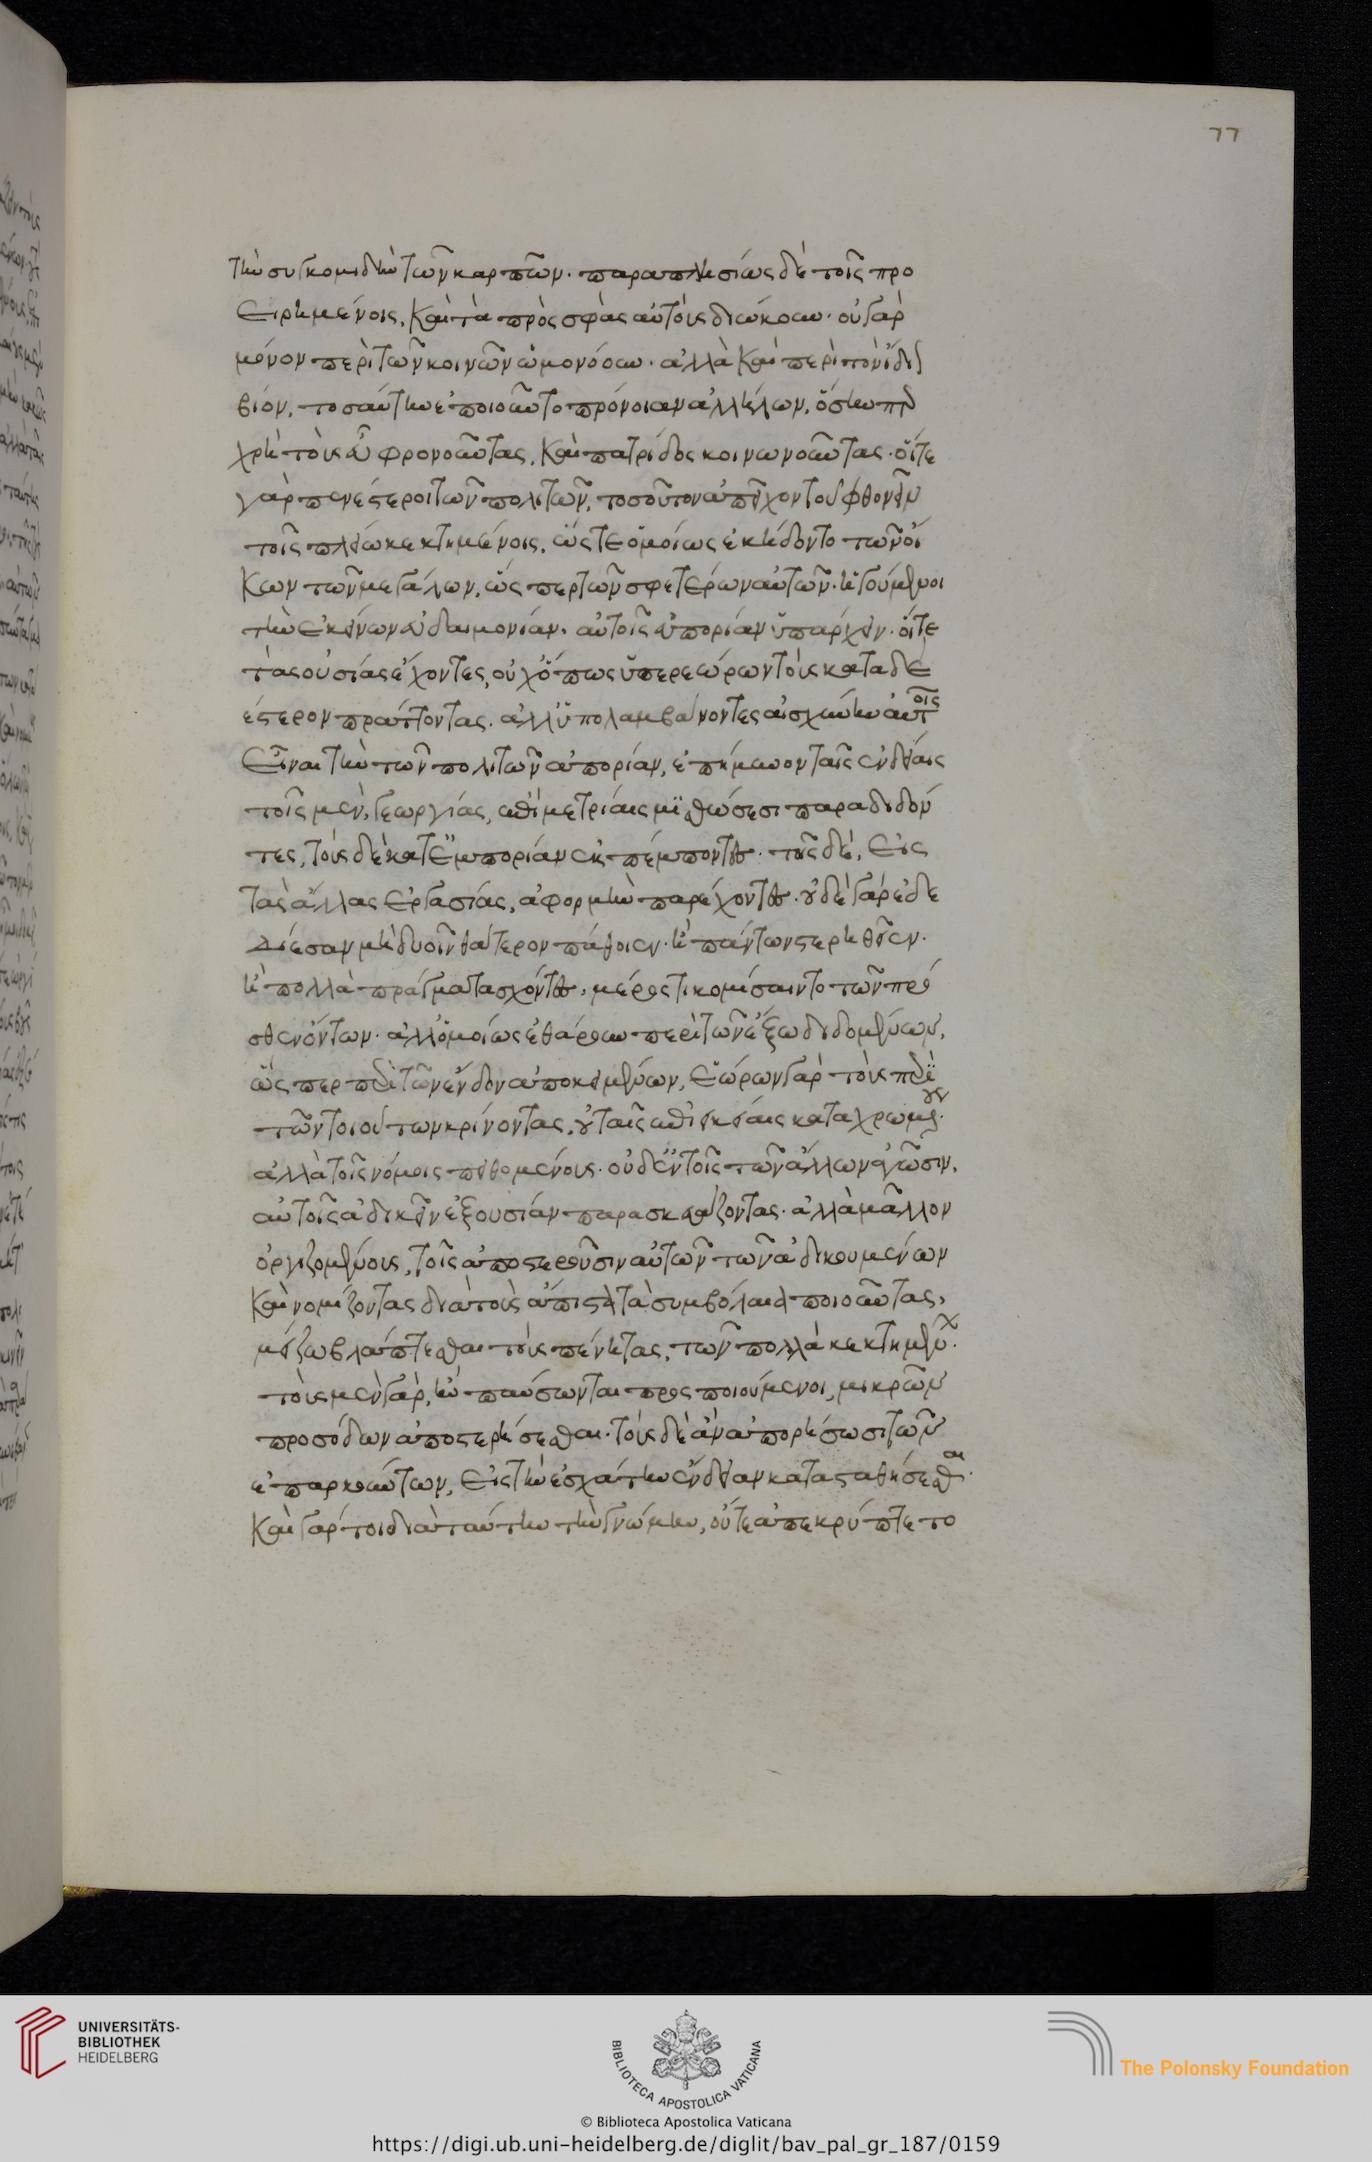 77
τὴν συγκομιδὴν τῶν καρπῶν. παραπλησίως δὲ τοῖς προ
ειρημένοις, καὶ τὰ πρὸς σφᾶς αὐτοὺς διώκουν. οὐ γὰρ
μόνον περὶ τῶν κοινῶν ὡμονόουν. ἀλλὰ καὶ περὶ τὸν ἴδι
βίον, τοσαύτην ἐποιοῦντο πρόνοιαν ἀλλήλων, ὅσην περ
χρὴ τοὺς εὖ φρονοῦντας, καὶ πατρίδος κοινωνοῦντας. οἵτε
γὰρ πενέστεροι τῶν πολιτῶν, τοσοῦτον ἀπεῖχον τοῦ φθονεῖν
τοῖς πλείω κεκτημένοις, ὥστε ὁμοίως ἐκήδοντο τῶν οἴ
κων τῶν μεγάλων, ὥσπερ τῶν σφετέρων αὐτῶν. ἡγούμενοι
τὴν ἐκείνων εὐδαιμονίαν. αὐτοῖς εὐπορίαν ὑπάρχειν. οἵτε
τὰς οὐσίας ἔχοντες, οὐχ ὅπως ὑπερεώρων τοὺς καταδε
έστερον πράττοντας. ἀλλ ὑπολαμβάνοντες αἰσχύνην αὐτοῖς
εἶναι τὴν τῶν πολιτῶν ἀπορίαν, ἐπήμυνον ταῖς ἐνδείαις
τοῖς μὲν, γεωργίας, ἐπὶ μετρίαις μισθώσεσι παραδιδόν
τες, τοὺς δὲ κατ ἐμπορίαν ἐκπέμποντες. τοῖς δὲ, εἰς
τὰς ἄλλας ἐργασίας, ἀφορμὴν παρέχοντες. οὐδὲ γὰρ ἐδε
δίεσαν μὴ δυοῖν θάτερον πάθοιεν. ἢ πάντων στερηθεῖεν.
ἢ πολλὰ πράγματα σχόντες, μέρος τι κομίσαιντο τῶν προ
σθεν ὄντων. ἀλλ ὁμοίως ἐθάρρουν περὶ τῶν ἔξω διδομένων,
ὥσπερ περὶ τῶν ἔνδον ἀποκειμένων, ἑώρων γὰρ τοὺς περὶ
τῶν τοιούτων κρίνοντας, οὐ ταῖς ἐπιεικείαις καταχρωμένους.
ἀλλὰ τοῖς νόμοις πειθομένους. οὐδ ἐν τοῖς τῶν ἄλλων ἀγῶσιν,
αὐτοῖς ἀδικεῖν ἐξουσίαν παρασκευάζοντας. ἀλλὰ μᾶλλον
ὀργιζομένους, τοῖς ἀποστεροῦσιν αὐτῶν τῶν ἀδικουμένων
καὶ νομίζοντας διὰ τοὺς ἄπιστα τὰ συμβόλαια ποιοῦντας,
μείζω βλάπτεσθαι τοὺς πένητας, τῶν πολλὰ κεκτημένων.
τοὺς μὲν γὰρ, ἢν παύσωνται προςποιούμενοι, μικρῶν
προσόδων ἀποστερήσεσθαι. τοὺς δὲ ἂν ἀπορήσωσι τῶν
ἐπαρκούντων, εἰς τὴν ἐσχάτην ἔνδειαν κατασταθήσεσθαι.
καὶ γάρ τοι διὰ ταύτην τὴν γνώμην, οὔτε ἀπεκρύπτετο
UNIVERSITÄTS-
BIBLIOTHEK
HEIDELBERG
BIBLIOTECA APOSTOLICA VATICANA
The Polonsky Foundation
© Biblioteca Apostolica Vaticana
https://digi.ub.uni-heidelberg.de/diglit/bav_pal_gr_187/0159